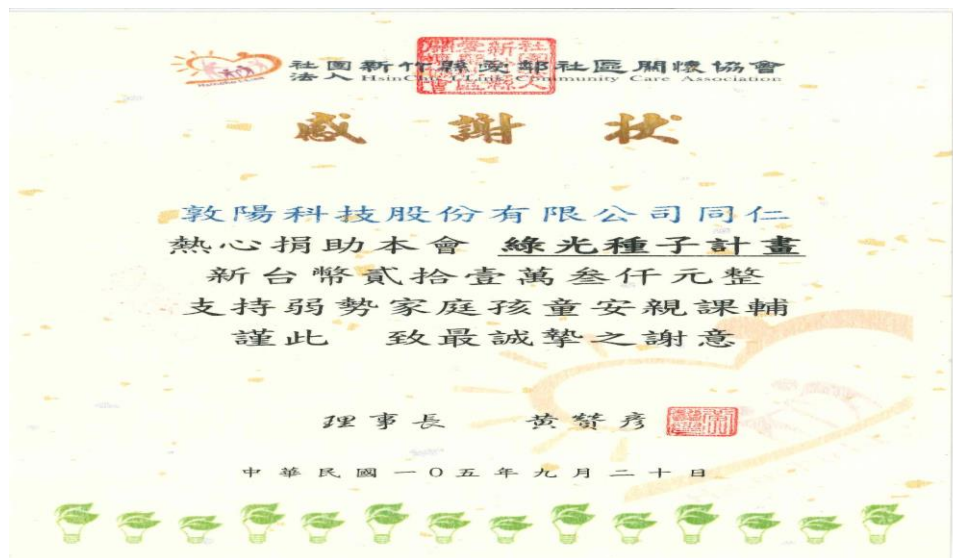 社團法人 新竹縣愛鄰社區關懷協會
HsinChu I-Link Community Care Association
感謝狀
敦陽科技股份有限公司同仁
熱心捐助本會 綠光種子計畫
新台幣貳拾壹萬叁仟元整
支持弱勢家庭孩童安親課輔
謹此 致最誠摯之謝意
理事長 黃贊彥
中華民國一0五年九月二十日